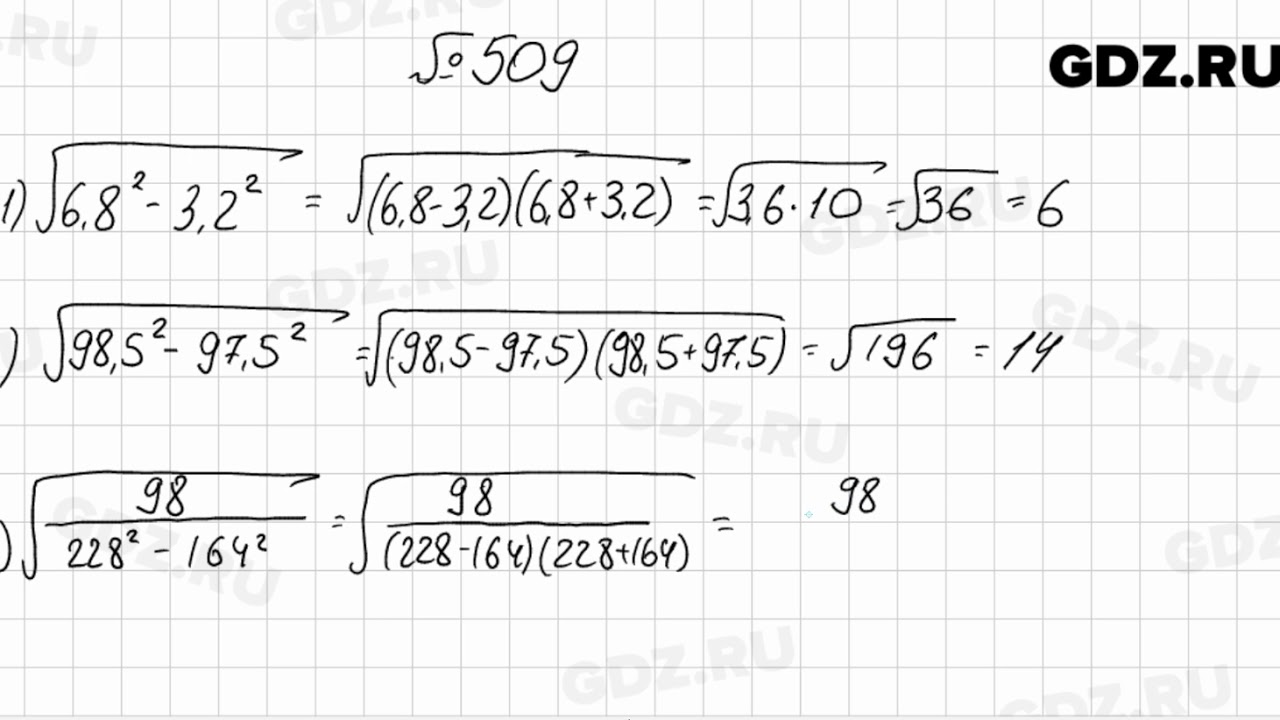 № 509
GDZ.RU
1) √(6,8² - 3,2²) = √((6,8-3,2)(6,8+3,2)) = √(3,6·10) = √36 = 6
) √(98,5² - 97,5²) = √((98,5-97,5)(98,5+97,5)) = √196 = 14
) √(98/(228² - 164²)) = √(98/((228-164)(228+164))) = 98